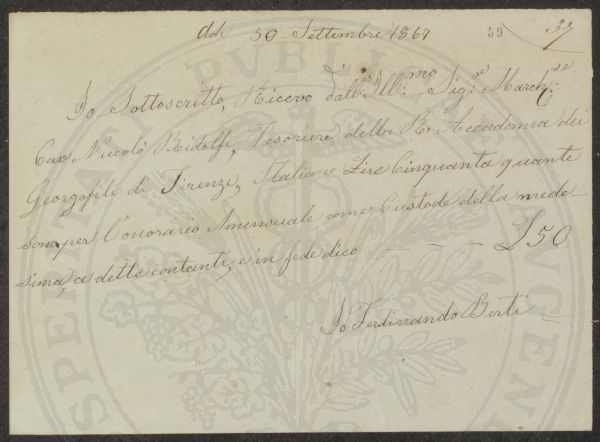 Add. 50 Settembre 1867 59 37
Io Sottoscritto, Ricevo dall'Ill:mo Sig:re March:se
Cav. Niccolò Ridolfi, Tesoriere della R. Accademia dei
Georgofili di Firenze, Italiane Lire Cinquanta quante
sono per l'onorario mensuale come Custode della mede
sima, a dette contanti, e in fede dico £50
Io Ferdinando Berti
PUBLIC